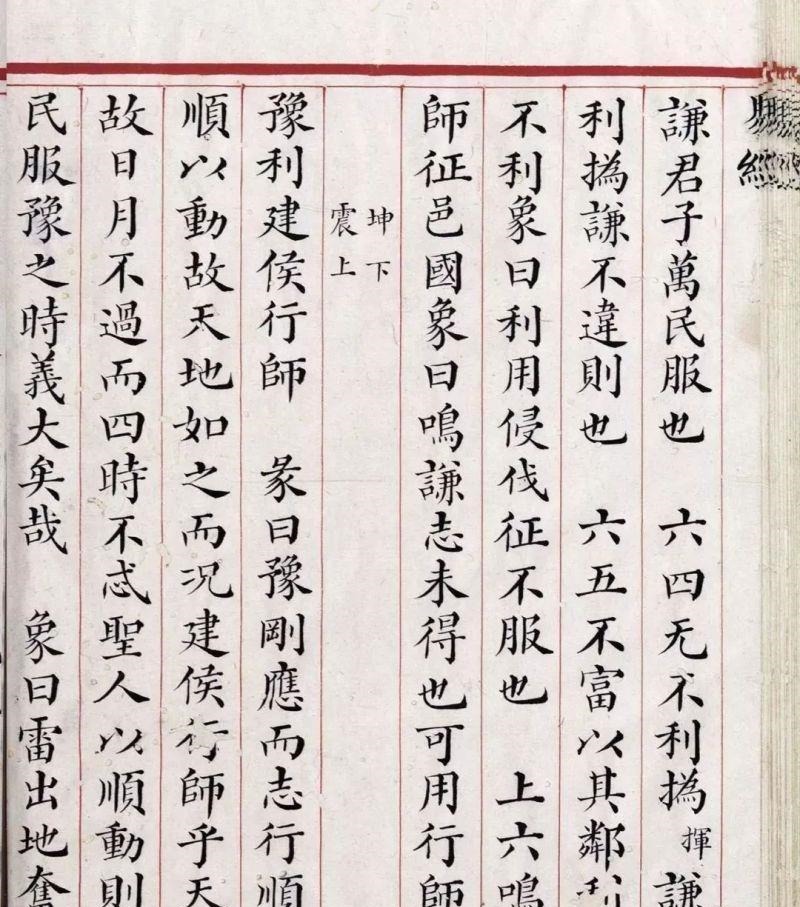 謙君子萬民服也　六四无不利撝揮謙
利撝謙不違則也　六五不富以其鄰利
不利象曰利用侵伐征不服也　上六鳴
師征邑國象曰鳴謙志未得也可用行師
坤下
震上
豫利建侯行師　彖曰豫剛應而志行順
順以動故天地如之而况建侯行師乎天
故日月不過而四時不忒聖人以順動則
民服豫之時義大矣哉　象曰雷出地奮